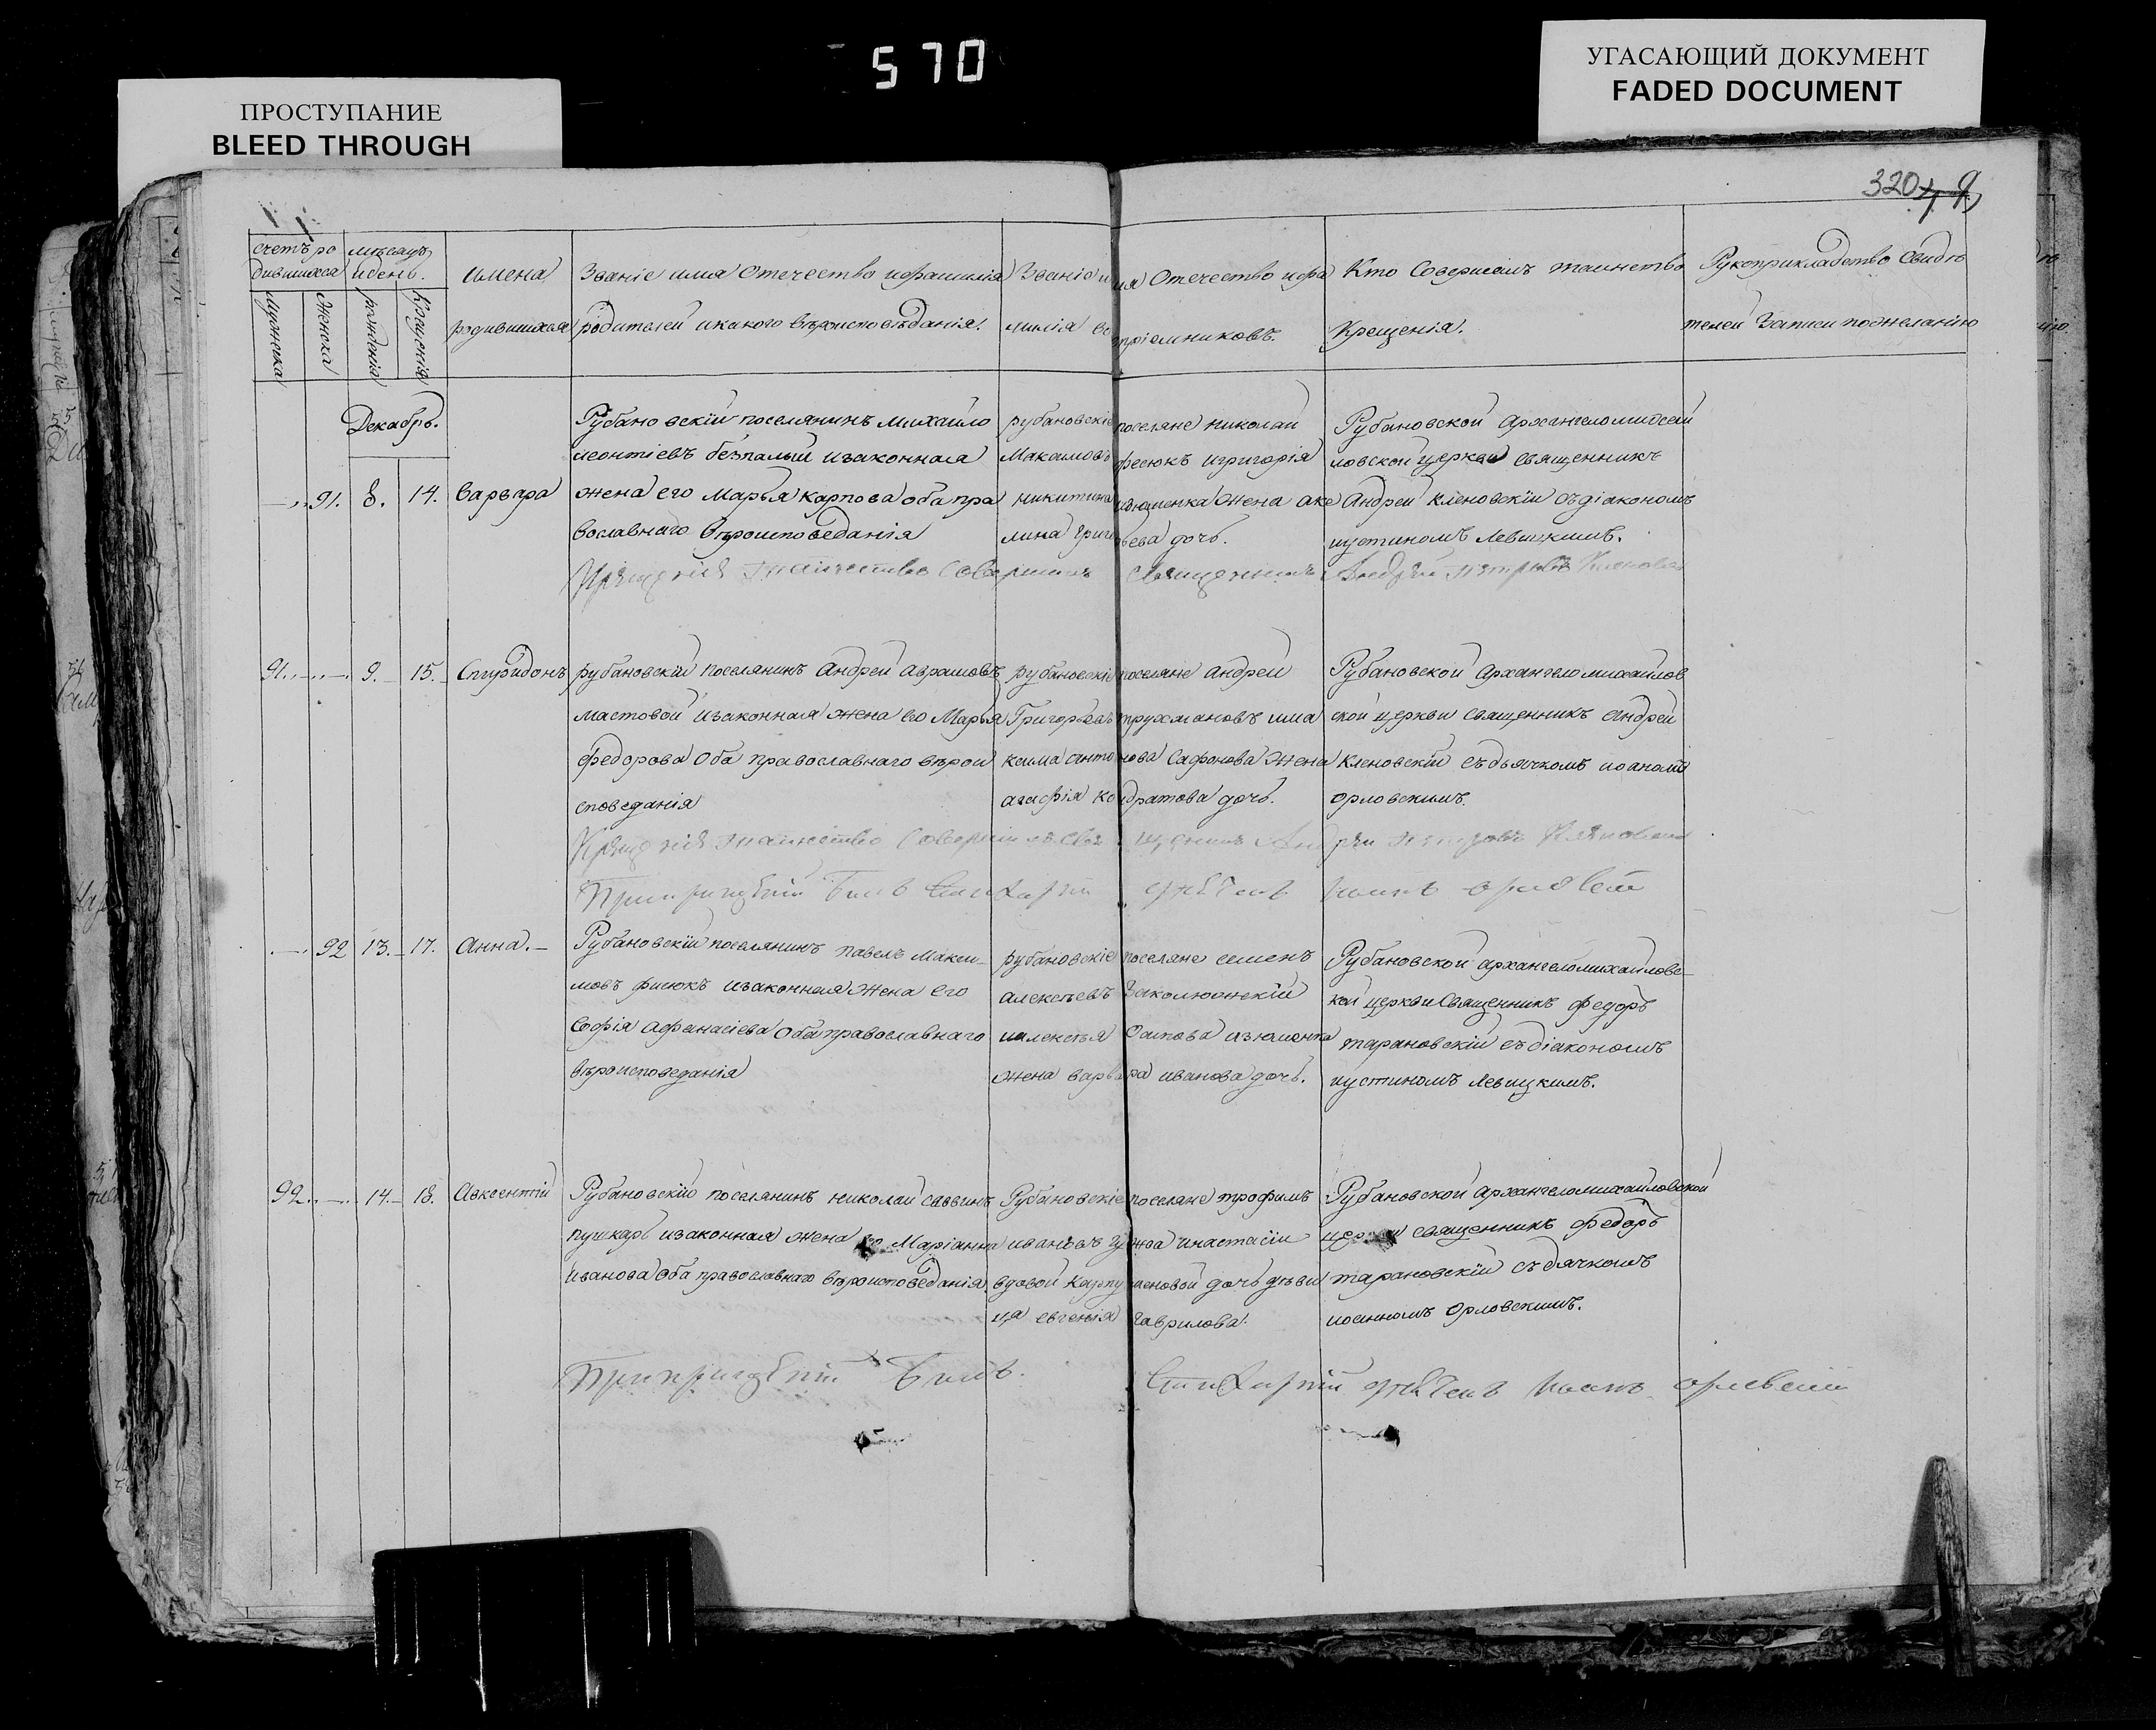 570
ПРОСТУПАНИЕ
BLEED THROUGH
УГАСАЮЩИЙ ДОКУМЕНТ
FADED DOCUMENT
320 49
счетъ ро
дившихся
Мужеска
Женска
мѣсяцъ
и день.
рожденія
Крещенія
имена
родившихся
Званіе имя Отечество и фамилія
родителей и какого вѣроисповѣданія.
Званіе имя Отечество и фа
милія воспріемниковъ.
Кто Совершалъ таинство
Крещенія.
Рукоприкладство Свидѣ
телей Записи по желанію
Декабрь.
91. 8. 14. Варвара
Рубановскій поселянинъ Михайло
леонтіевъ безпалый и законная
жена его Марья карпова оба пра
вославнаго вѣроисповеданія
рубановскіе поселяне николай
Максимовъ фесюкъ и григорія
никитина жена аке
лина григорьева дочь.
Рубановской архангеломихай
ловской церкви священникъ
Андрей кленовскій съ діакономъ
иустиномъ левицкимъ.
Крещенія таинство совершилъ Священникъ Андрей Петровъ Кленовскій
91. 9. 15. Спиридонъ
рубановскій поселянинъ андрей аврамовъ
мастовой и законная жена его Марья
федорова Оба православнаго вѣрои
споведанія
рубановскіе поселяне андрей
Григорьевъ трухмановъ и ма
ксима антонова Сафонова жена
агафія кондратова дочь.
Рубановской архангеломихайлов
ской церкви священникъ андрей
кленовскій съ дьячкомъ иоанномъ
орловскимъ.
Крещенія таинство совершилъ священникъ Андрей Петровъ Кленовскій
92 13. 17. Анна.
Рубановскій поселянинъ павелъ макси-
мовъ фисюкъ и законная жена его
Софія афанасіева Оба православнаго
вѣроисповеданія
рубановскіе поселяне семенъ
алексѣевъ Заколюжскій
и алексѣя Осипова изюмонка
жена варвара иванова дочь.
Рубановской архангеломихайловс-
кой церкви Священникъ федоръ
тарановскій съ діакономъ
иустиномъ левицкимъ.
92. 14. 18. Авксентій
Рубановскій поселянинъ николай саввинъ
пушкарь и законная жена его Маріанна
Иванова Оба православнаго вѣроисповеданія.
Рубановскіе поселяне трофимъ
ивановъ гужва и настасіи
вдовой дочь дѣви
ца евгенія гаврилова.
Рубановской архангеломихайловской
церкви священникъ федоръ
тарановскій съ дячкомъ
иоанномъ Орловскимъ.